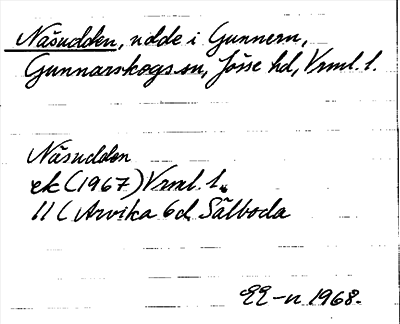 Näsudden, udde i Gunnern,
Gunnarskogs sn, Jösse hd, Vrml. l.
Näsudden
ek (1967) Vrml. l.
11 C Arvika 6d Sälboda
EE-n 1968.